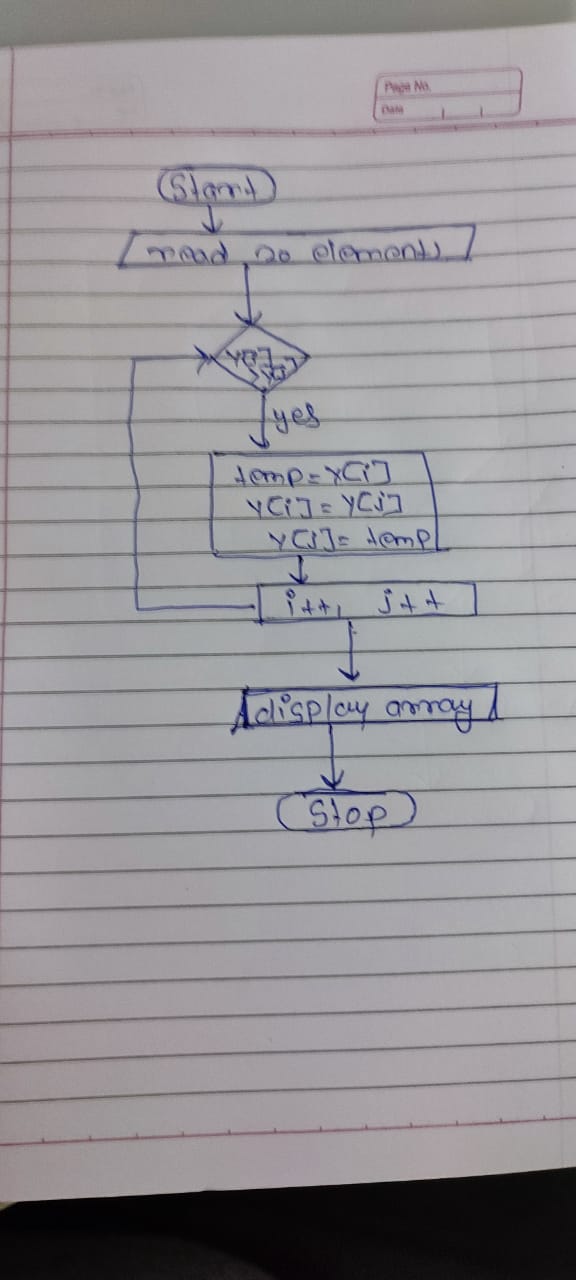 Page No.
Date
Start
read 20 elements
Y[i]
>Y[j]
yes
temp = Y[i]
Y[i] = Y[j]
Y[j] = temp
i++, j++
display array
Stop